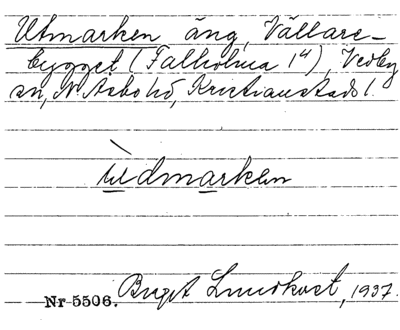 Utmarken äng, Vällare-
bygget (Falholma 1⁴), Vedby
sn, N. Åsbo hd, Kristianstads l.
ùdmarken
Nr 5506. Birgit Lundkvist, 1937.